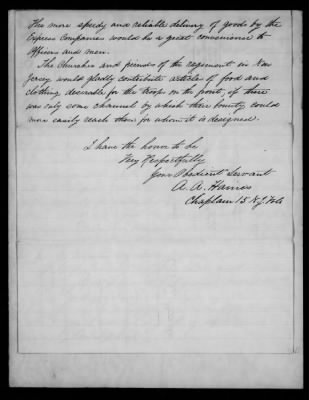 The more speedy and reliable delivery of goods by the
Express Companies would be a great convenience to
Officers and men.
The Churches and friends of the regiment in New
Jersey would gladly contribute articles of food and
clothing desirable for the troops on the front, if there
was only some channel by which their bounty could
more easily reach those for whom it is designed.
I have the honor to be
Very Respectfully
Your Obedient Servant
A. A. Haines
Chaplain 15 N.J. Vols